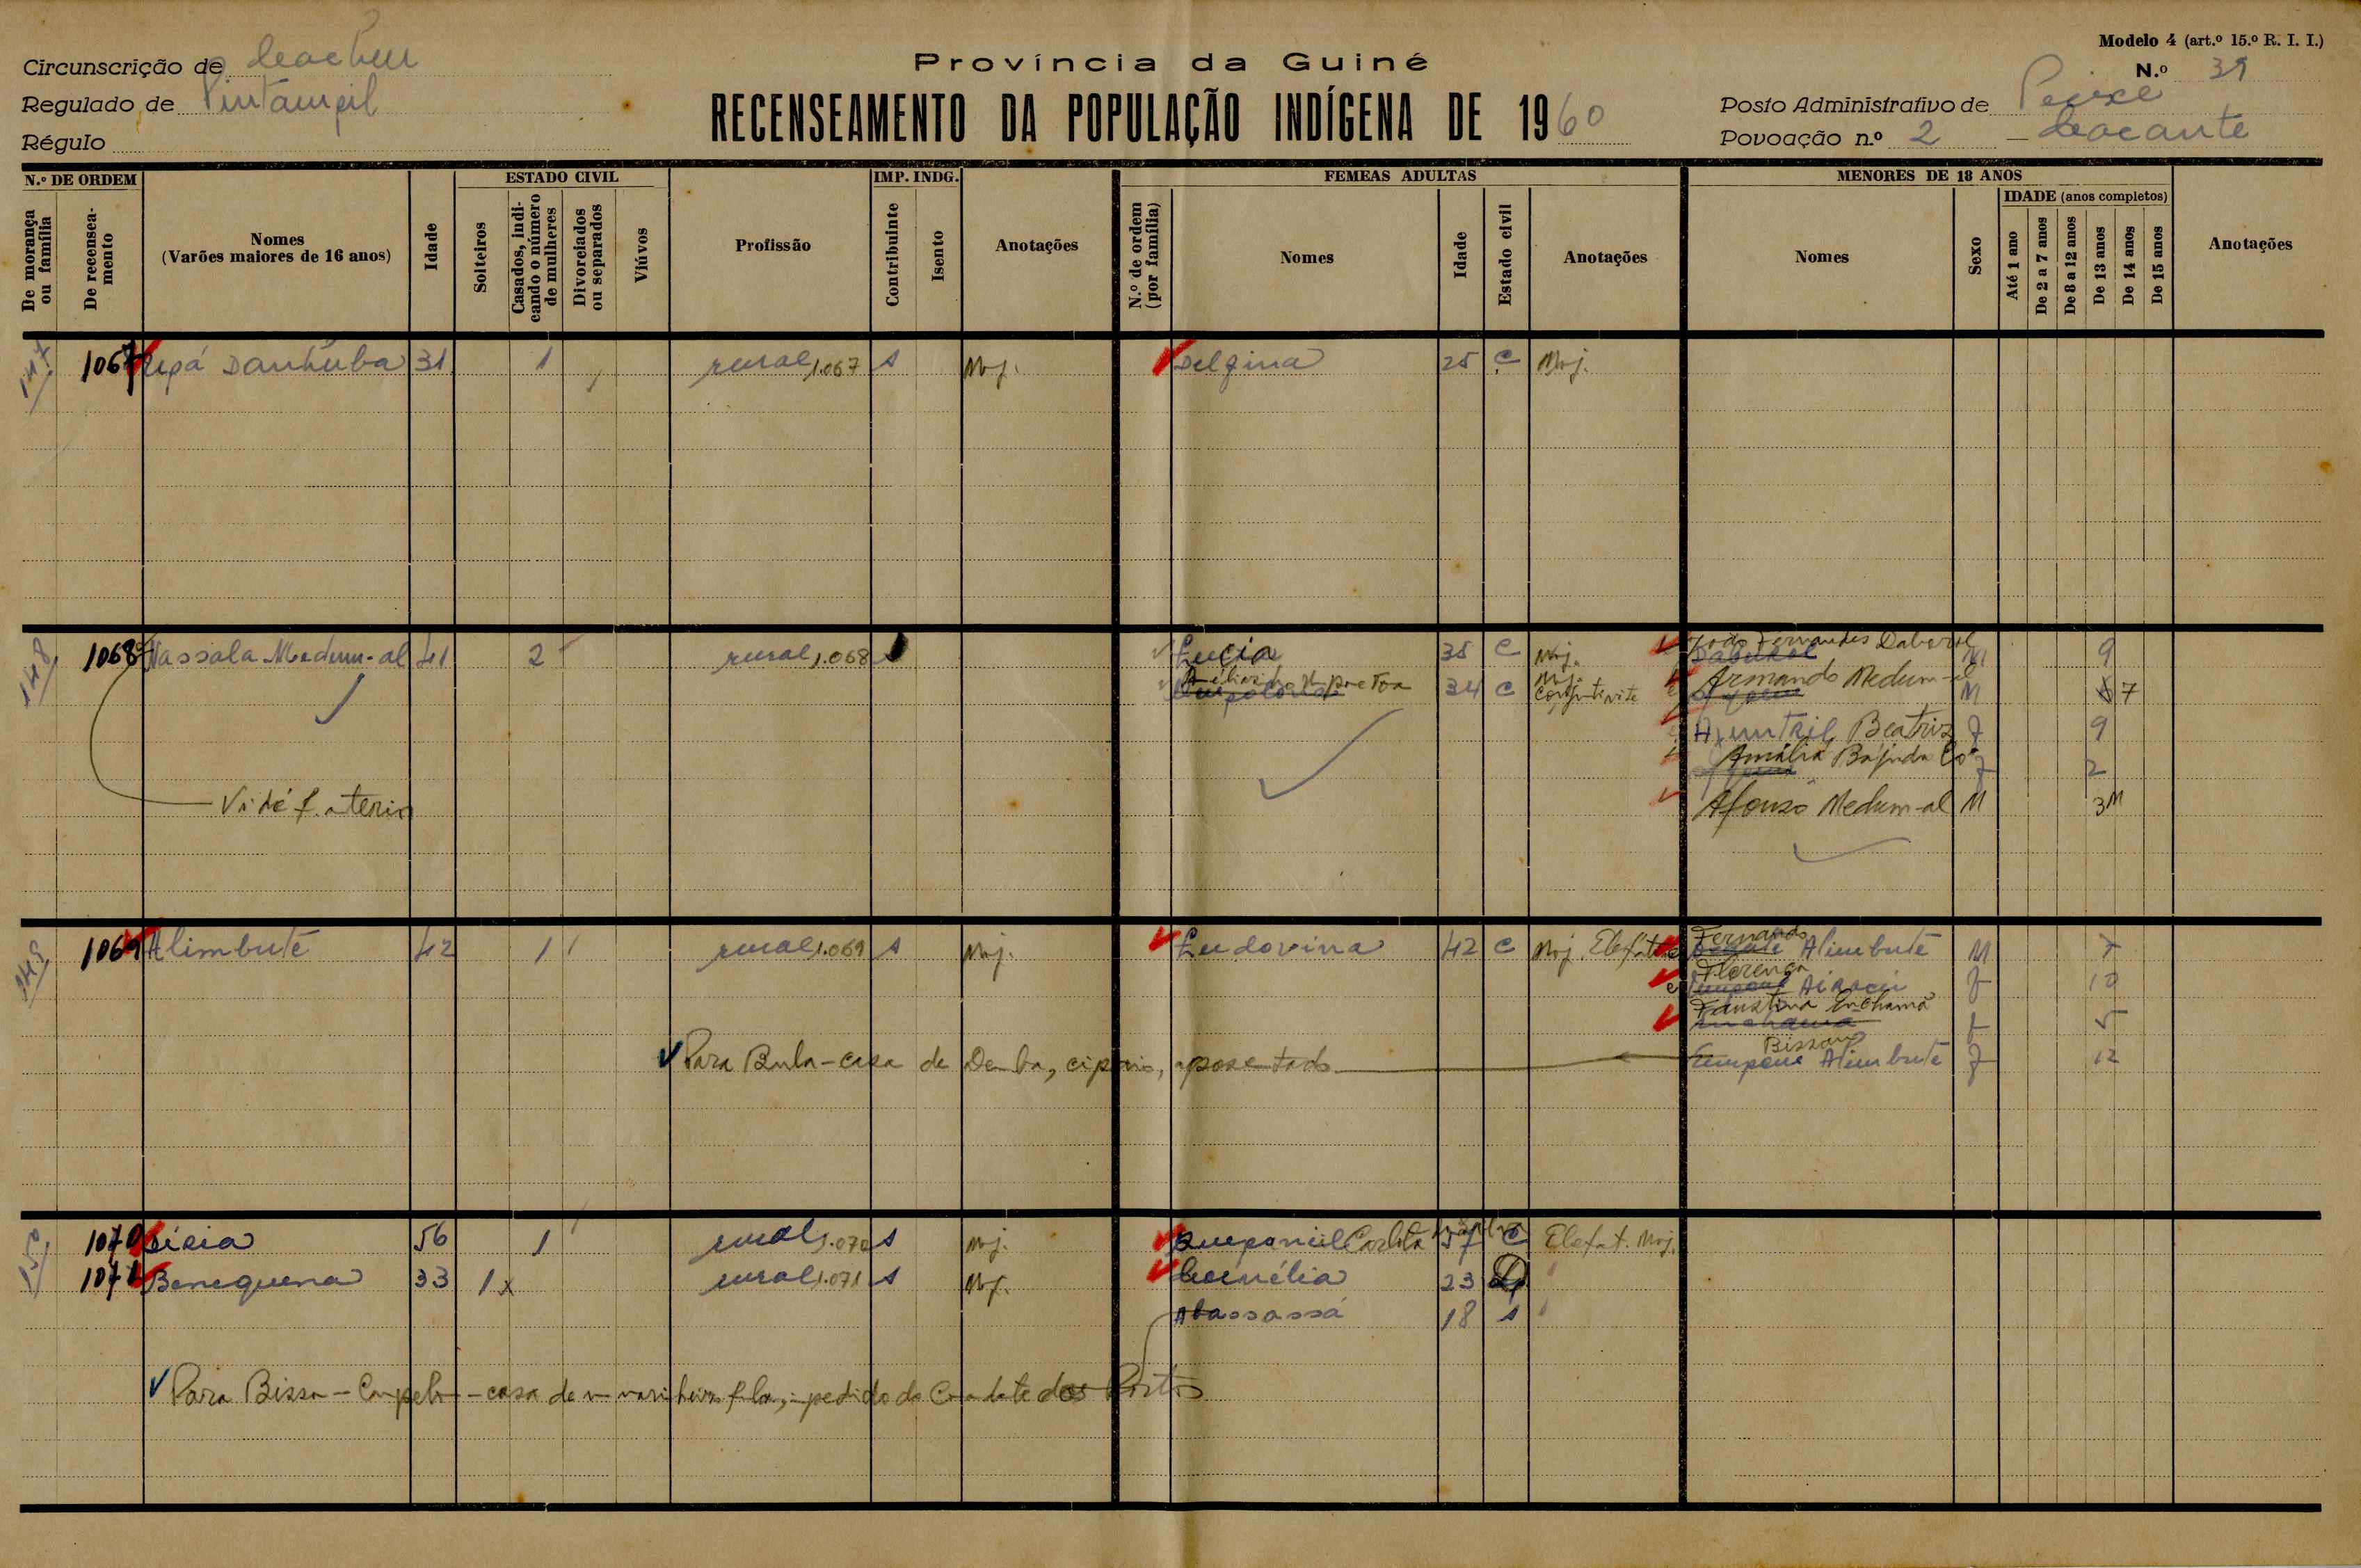 Modelo 4 (art.º 15.º R. I. I.)
Circunscrição de Cacheu
Província da Guiné
N.º 39
Regulado de Pintampil
RECENSEAMENTO DA POPULAÇÃO INDÍGENA DE 1960
Posto Administrativo de Peixe
Régulo
Povoação n.º 2 — Cacante
N.º DE ORDEM
ESTADO CIVIL
IMP. INDG.
FEMEAS ADULTAS
MENORES DE 18 ANOS
De morança ou família
De recenseamento
Nomes (Varões maiores de 16 anos)
Idade
Solteiros
Casados, indicando o número de mulheres
Divorciados ou separados
Viúvos
Profissão
Contribuinte
Isento
Anotações
N.º de ordem (por família)
Nomes
Idade
Estado civil
Anotações
Nomes
Sexo
IDADE (anos completos)
Até 1 ano
De 2 a 7 anos
De 8 a 12 anos
De 13 anos
De 14 anos
De 15 anos
Anotações
147 1067 Upá Danhuba 31 1 rural 1.067 s Mj. Delfina 25 C Mj.
148 1068 Nassala Medum-al 41 2 rural 1.068 Lucia 35 C Mj. João Fernandes Daberal M 9
34 C Mj. Conjuntivite Armando Medum-al M 7
Beatriz F 9
Amália F 2
Vidé f. aterior
Afonso Medum-al M 3M
149 1069 Alimbuté 42 1 rural 1.069 s Mj. Ludovina 42 C Mj. Elefat. Fernando Alimbuté M 7
Florença F 10
Faustina Enchamá F 5
Para Bula - casa de Demba, cipaio, aposentado
Bissau
Alimbuté F 12
150 1070 56 1 rural 1.070 s Mj. Carlota 57 C Elefat. Mj.
1071 Benequena 33 1 x rural 1.071 s Mj. Cornélia 23
Abassassá 18 s
Para Bissa - Cupelo - casa de um marinheiro fula, a pedido do Comandante dos Portos